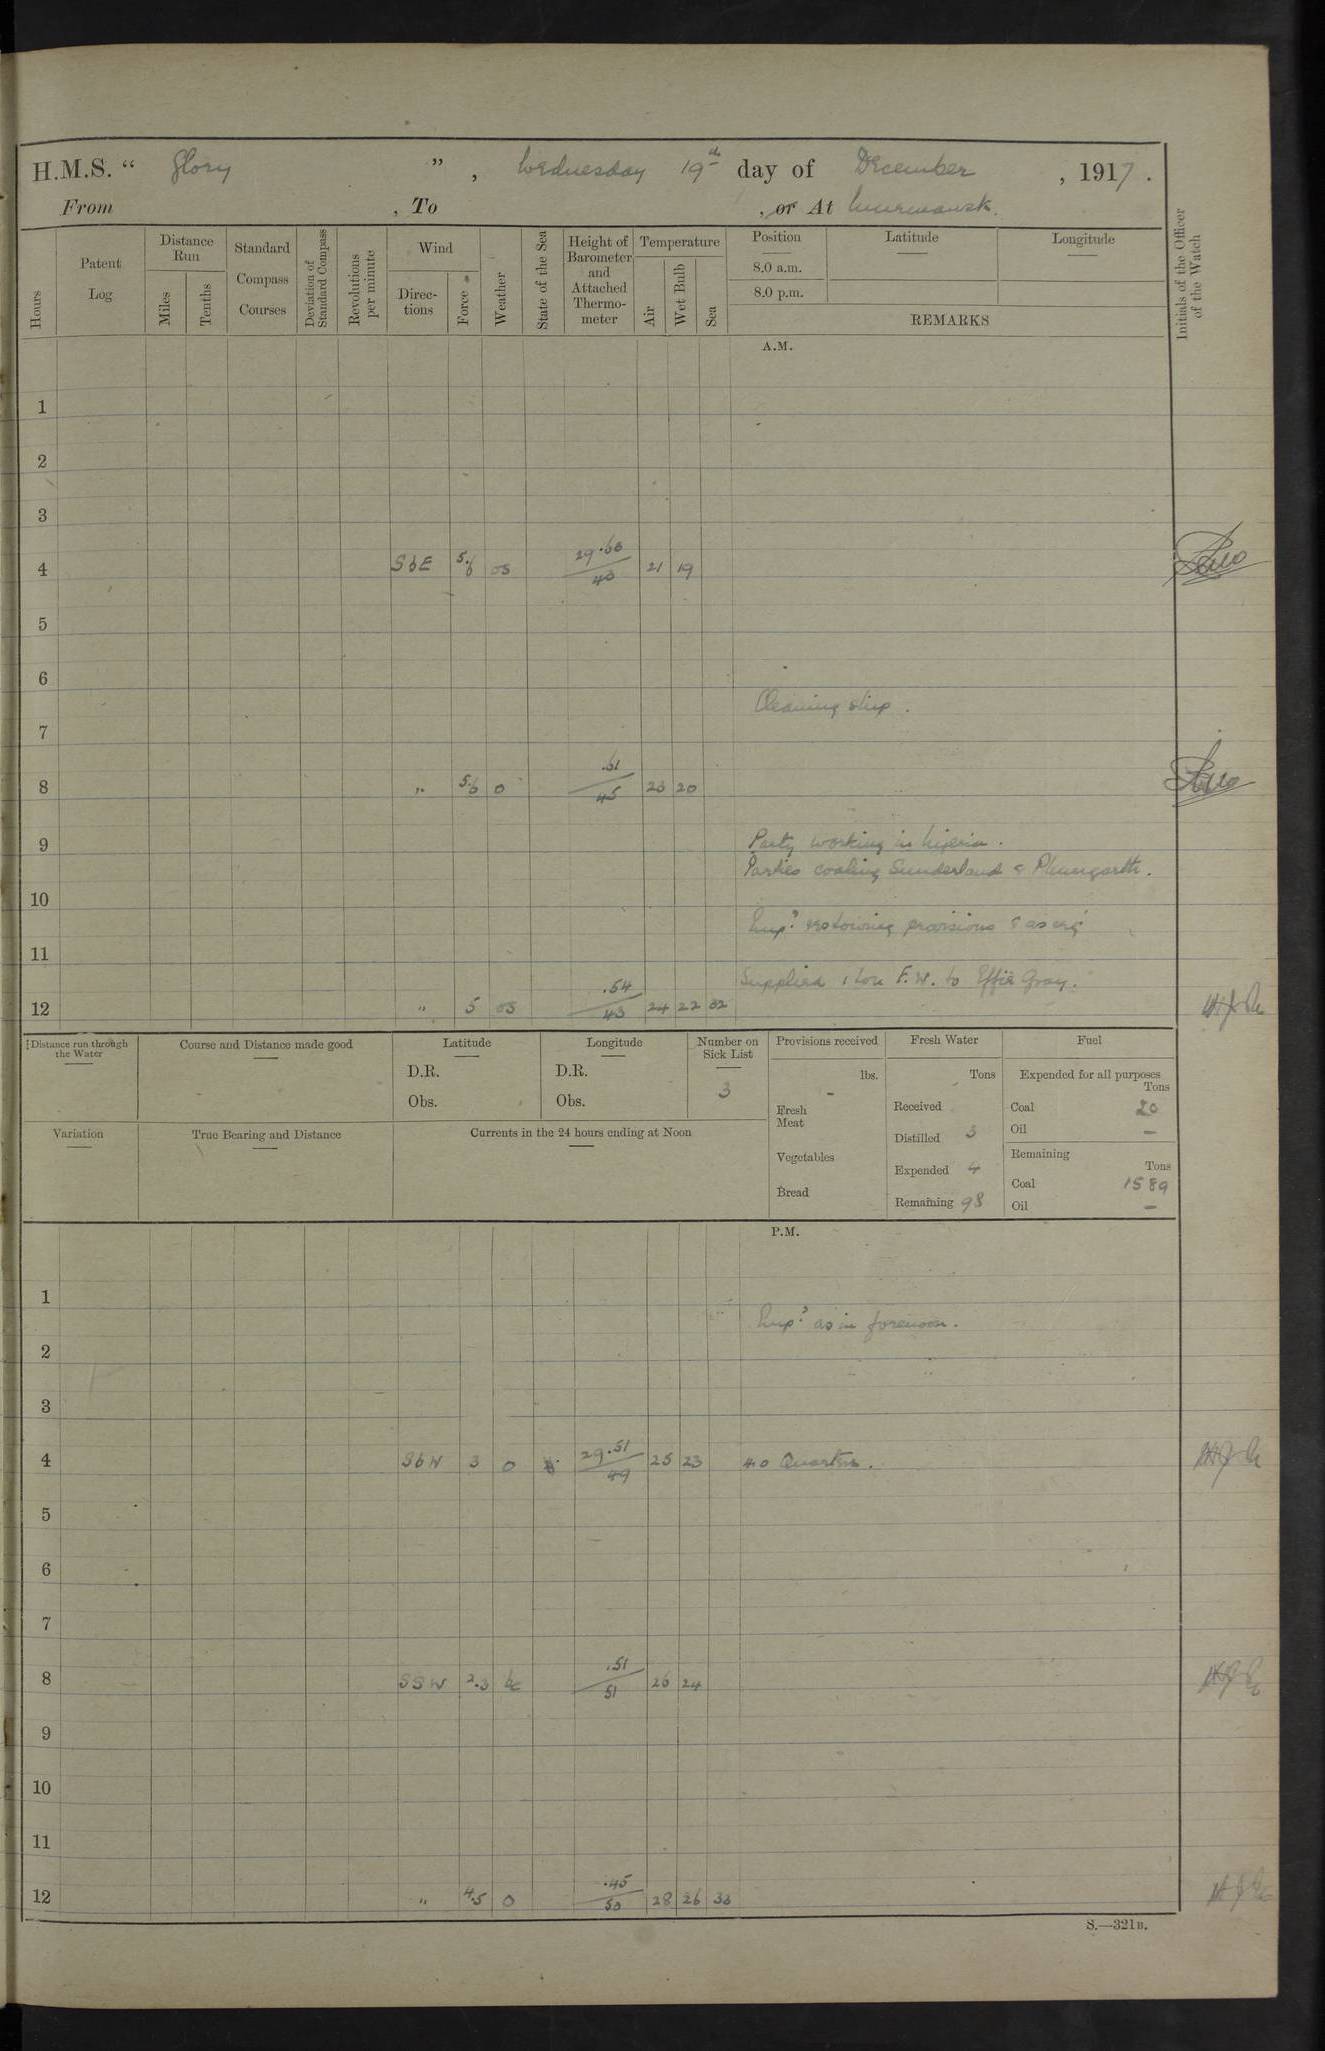 H.M.S. " Glory ", Wednesday 19th day of December, 1917.
From , To , or At Murmansk.
Hours
Patent Log
Distance Run
Miles
Tenths
Standard Compass Courses
Deviation of Standard Compass
Revolutions per minute
Wind
Directions
Force
Weather
State of the Sea
Height of Barometer and Attached Thermometer
Temperature
Air
Wet Bulb
Sea
Position
8.0 a.m.
8.0 p.m.
Latitude
Longitude
REMARKS
Initials of the Officer of the Watch
A.M.
1
2
3
4 SbE 5.6 os 29.60 40 21 19
5
6
Cleaning ship.
7
8 " 5.6 o .61 45 23 20
9 Party working in Nigeria.
Parties coaling Sunderland & Plumgarth.
10
Empd restowing provisions & as req
11
Supplied 1 ton F.W. to Effie Gray.
12 " 5 os .54 43 24 22 32
Distance run through the Water
Course and Distance made good
Latitude
D.R.
Obs.
Longitude
D.R.
Obs.
Number on Sick List
3
Provisions received
lbs.
-
Fresh Meat
Vegetables
Bread
Fresh Water
Tons
Received
Distilled 3
Expended 4
Remaining 98
Fuel
Expended for all purposes
Tons
Coal 20
Oil —
Remaining
Tons
Coal 1589
Oil —
Variation
True Bearing and Distance
Currents in the 24 hours ending at Noon
P.M.
1
Empd as in forenoon.
2
3
4 SbW 3 o 29.51 49 25 23 4.0 Quarters.
5
6
7
8 SSW 2.3 bc .51 51 26 24
9
10
11
12 " 4.5 o .45 50 28 26 33
S.—321B.